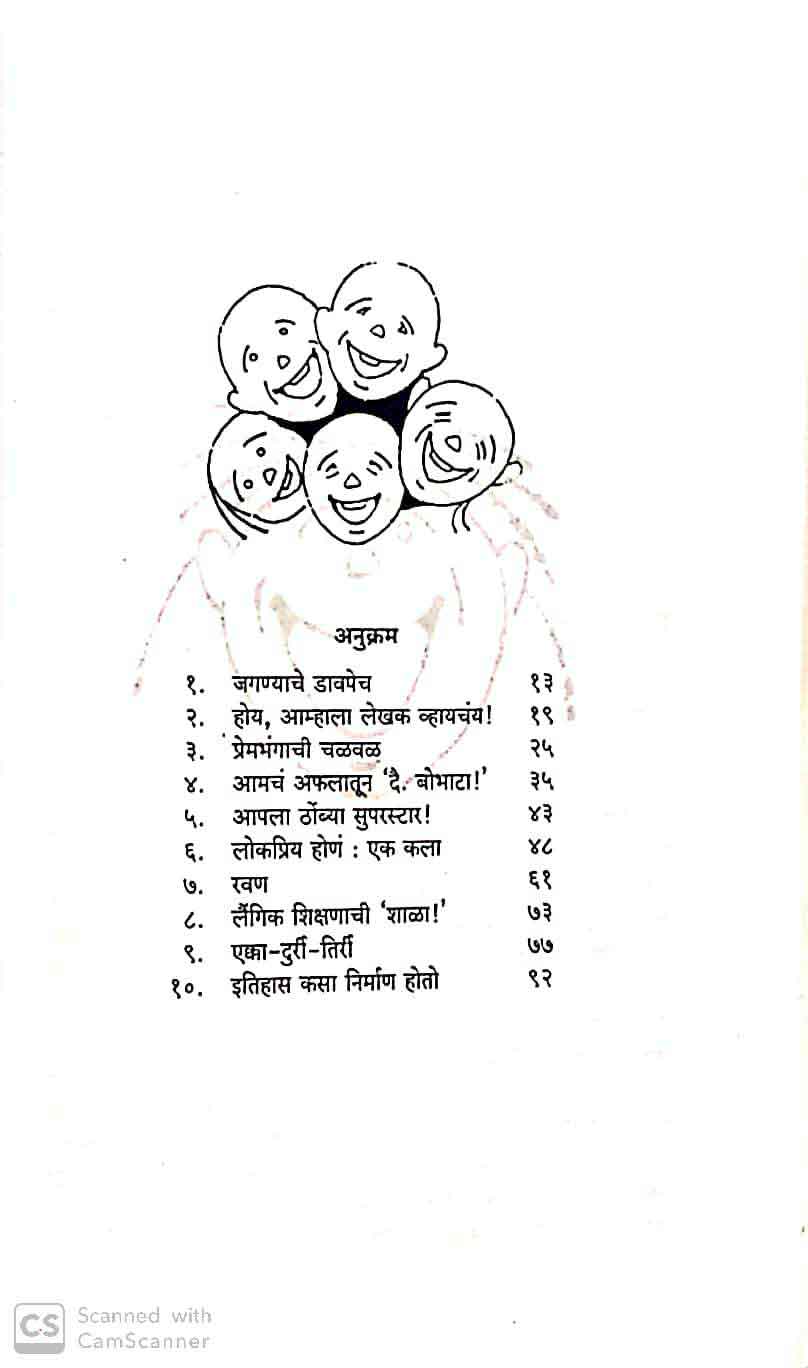 अनुक्रम
१. जगण्याचे डावपेच १३
२. होय, आम्हाला लेखक व्हायचंय! १९
३. प्रेमभंगाची चळवळ २५
४. आमचं अफलातून ‘दै. बोभाटा!’ ३५
५. आपला ठोंब्या सुपरस्टार! ४३
६. लोकप्रिय होणं : एक कला ४८
७. रवण ६१
८. लैंगिक शिक्षणाची ‘शाळा!’ ७३
९. एक्का-दुर्री-तिर्री ७७
१०. इतिहास कसा निर्माण होतो ९२
CS Scanned with
CamScanner